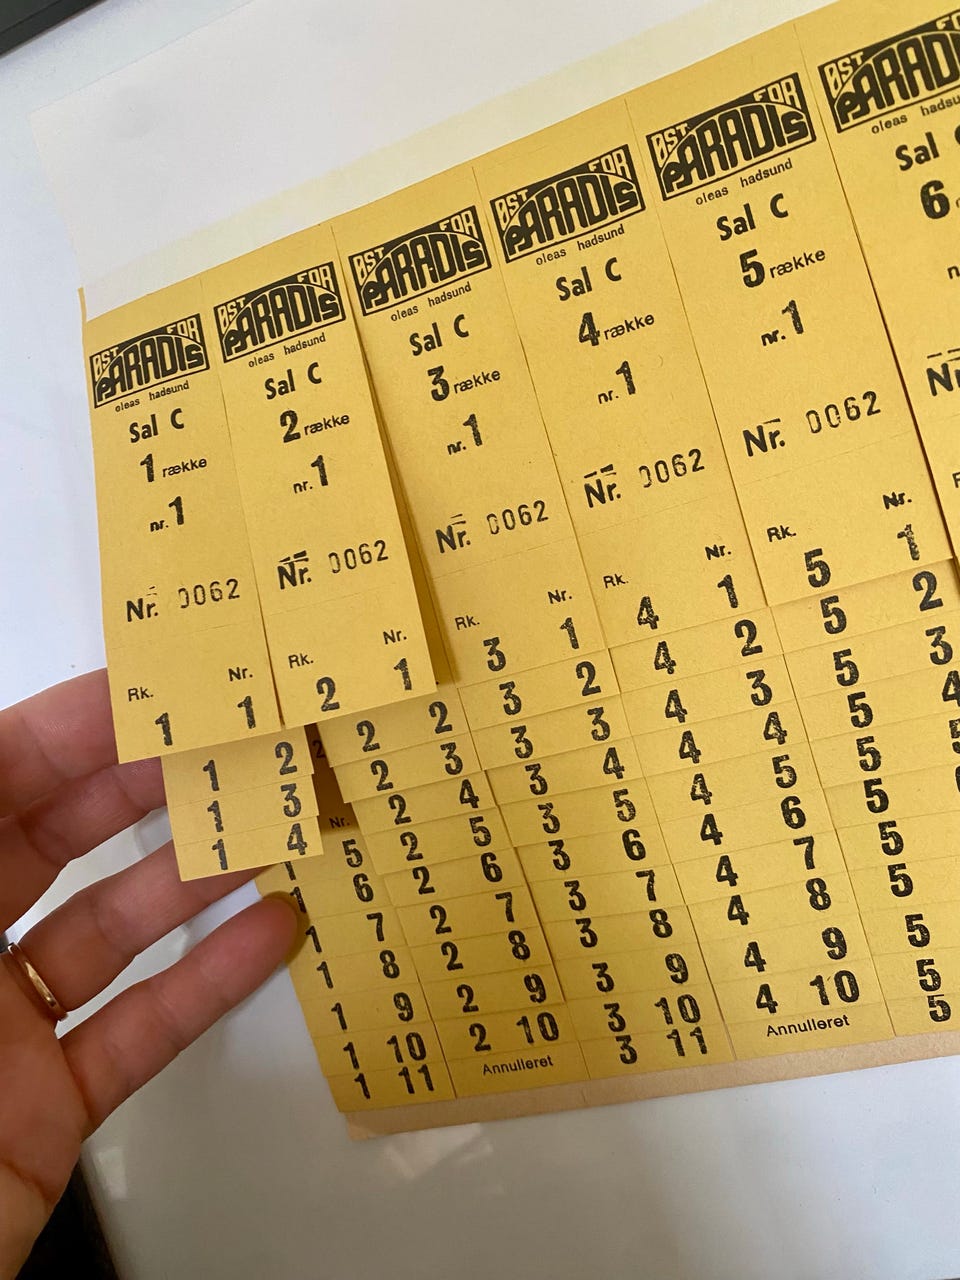 ØST FOR
PARADIS
oleas hadsund
Sal C
1 række
nr. 1
Nr. 0062
Rk. Nr.
1 1
1 2
1 3
1 4
1 5
1 6
1 7
1 8
1 9
1 10
1 11
ØST FOR
PARADIS
oleas hadsund
Sal C
2 række
nr. 1
Nr. 0062
Rk. Nr.
2 1
2 2
2 3
2 4
2 5
2 6
2 7
2 8
2 9
2 10
Annulleret
2
Nr.
ØST FOR
PARADIS
oleas hadsund
Sal C
3 række
nr. 1
Nr. 0062
Rk. Nr.
3 1
3 2
3 3
3 4
3 5
3 6
3 7
3 8
3 9
3 10
3 11
ØST FOR
PARADIS
oleas hadsund
Sal C
4 række
nr. 1
Nr. 0062
Rk. Nr.
4 1
4 2
4 3
4 4
4 5
4 6
4 7
4 8
4 9
4 10
Annulleret
ØST FOR
PARADIS
oleas hadsund
Sal C
5 række
nr. 1
Nr. 0062
Rk. Nr.
5 1
5 2
5 3
5 4
5
5
5
5
5
5
5
ØST
PARAD
oleas
Sal
6
Nr